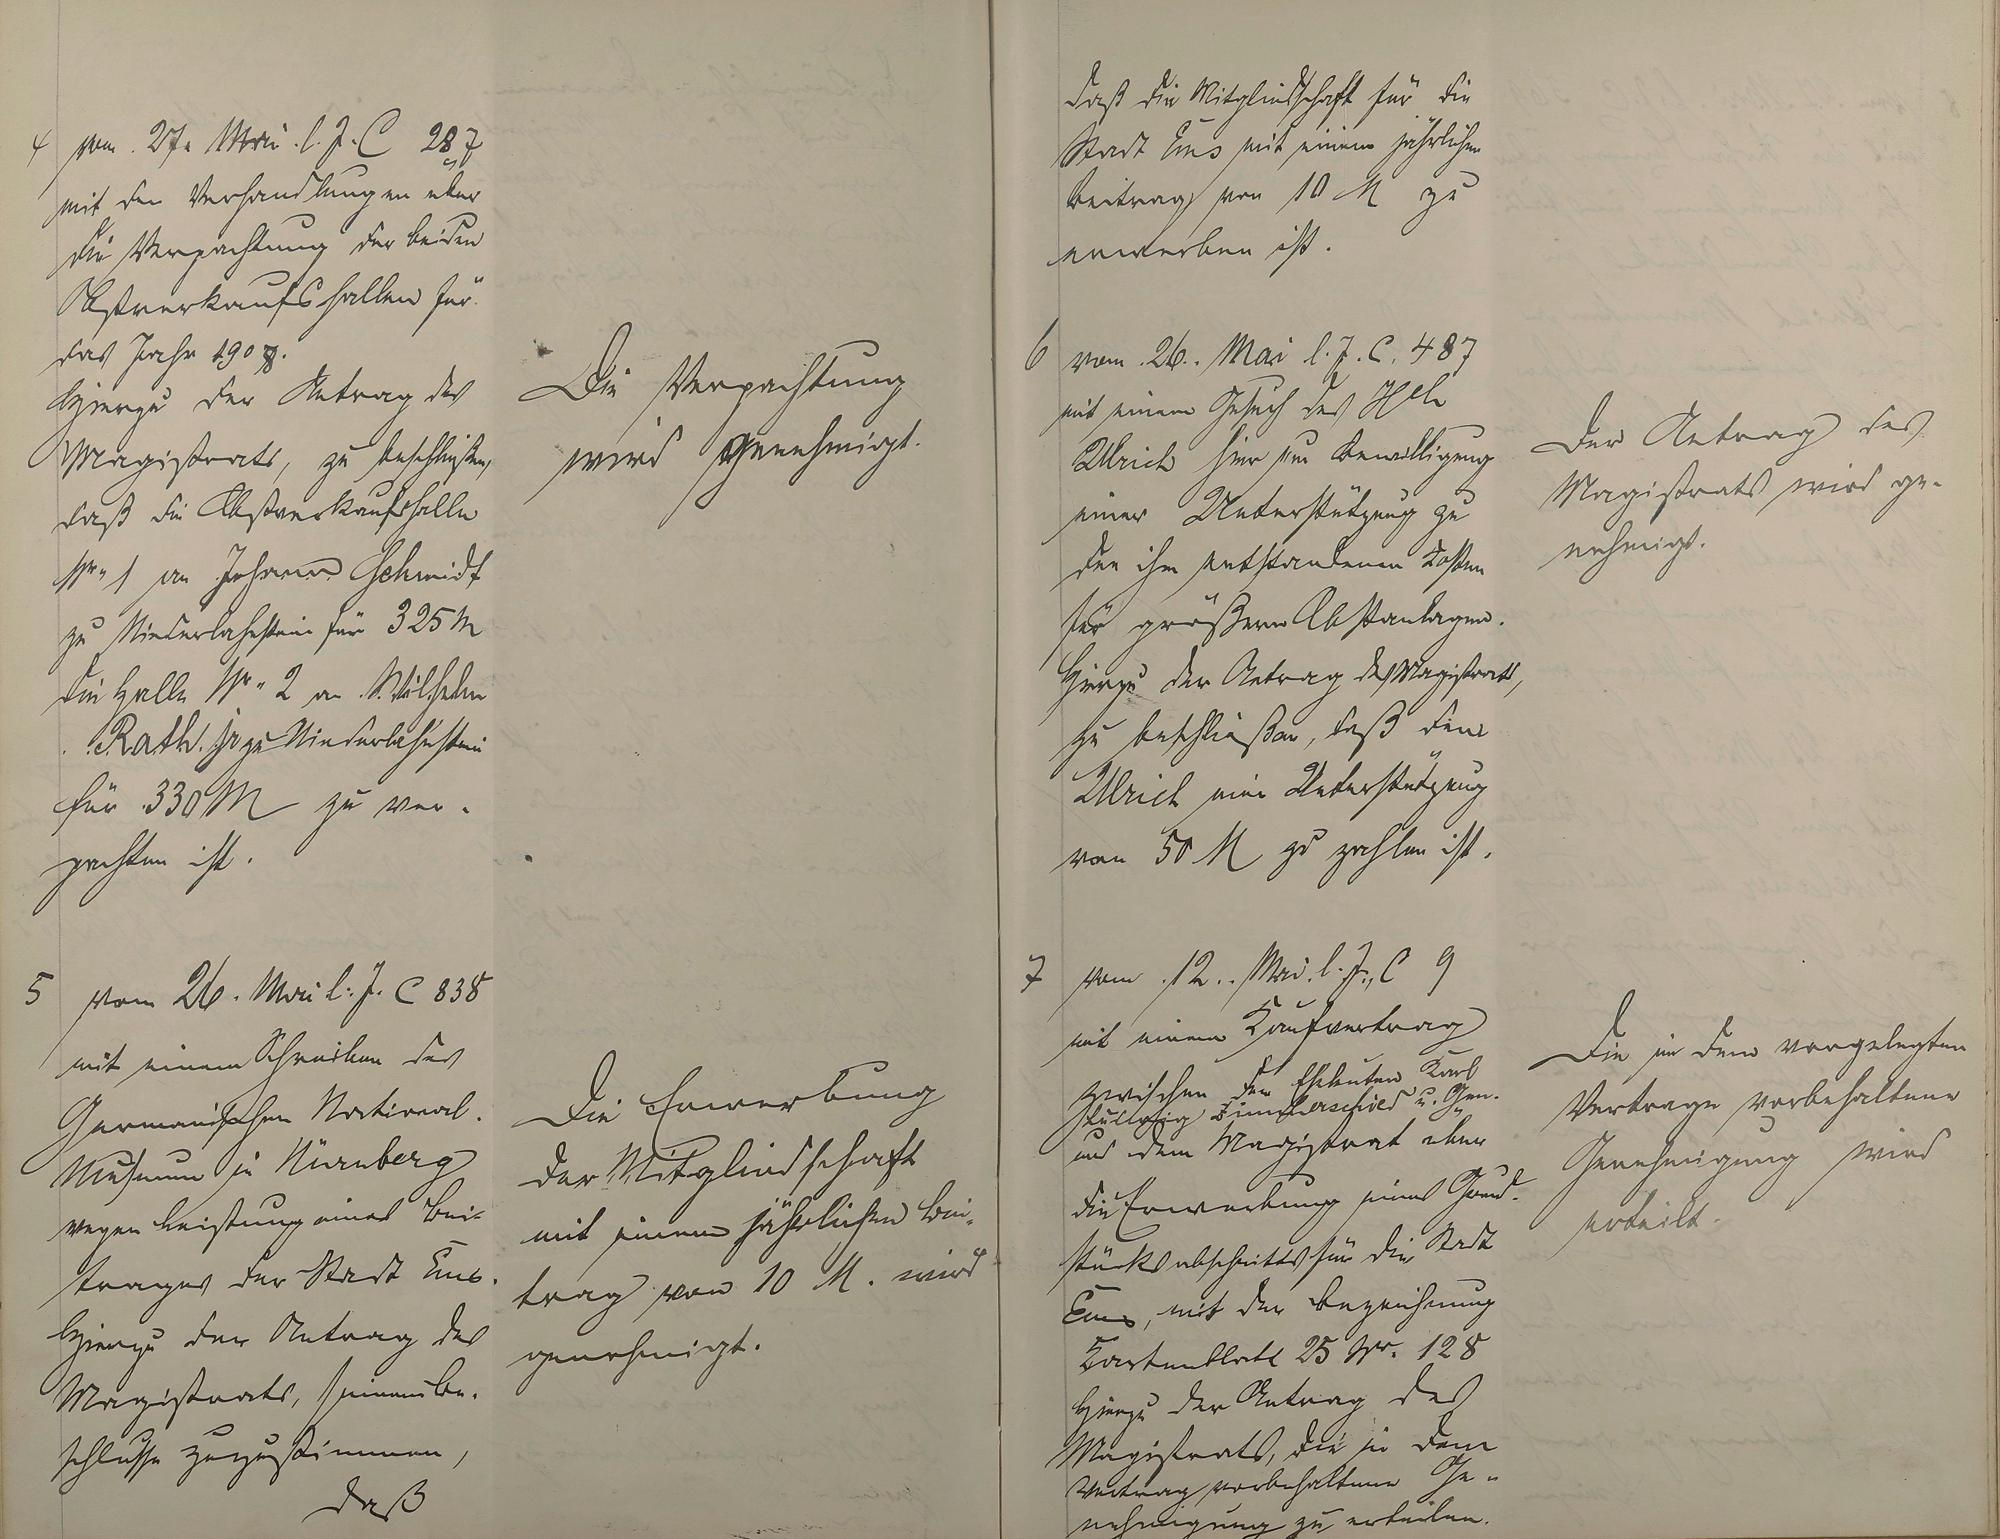 4 vom 27. Mai l. J. C 287
mit den Verhandlungen über
die Verpachtung der beiden
Obstverkaufshallen für
das Jahr 1908.
Hierzu der Antrag des
Magistrats, zu beschließen,
daß die Obstverkaufshalle
Nr. 1 an Johann Schmidt
zu Niederlahnstein für 325 M
die Halle Nr. 2 an Wilhelm
Rath jr zu Niederlahnstein
für 330 M zu ver-
pachten ist.
Die Verpachtung
wird genehmigt.
5 vom 26. Mai l. J. C 838
mit einem Schreiben des
Germanischen National-
Museum in Nürnberg
wegen Leistung eines Bei-
trages der Stadt Ems.
Hierzu der Antrag des
Magistrats, seinem Be-
schlusse zuzustimmen,
daß
Die Erwerbung
der Mitgliedschaft
mit einem jährlichen Bei-
trag von 10 M. wird
genehmigt.
daß die Mitgliedschaft für die
Stadt Ems mit einem jährlichen
Beitrag von 10 M zu
erwerben ist.
6 vom 26. Mai l. J. C. 487
mit einem Gesuch des
Ulrich hier um Bewilligung
einer Unterstützung zu
den ihm entstandenen Kosten
für größere Obstanlagen.
Hierzu der Antrag des Magistrats,
zu beschließen, daß dem
Ulrich eine Unterstützung
von 50 M zu zahlen ist.
Der Antrag des
Magistrats wird ge-
nehmigt.
7 vom 12. Mai l. J., C 9
mit einem Kaufvertrag
zwischen den Eheleuten Karl
u. Gen.
und dem Magistrat über
die Erwerbung eines Grund-
stücksabschnitts für die Stadt
Ems, mit der Bezeichnung
Kartenblatt 25 Nr. 128
Hierzu der Antrag des
Magistrats, die in dem
Vertrag vorbehaltene Ge-
nehmigung zu erteilen.
Die in dem vorgelegten
Vertrage vorbehaltene
Genehmigung wird
erteilt.